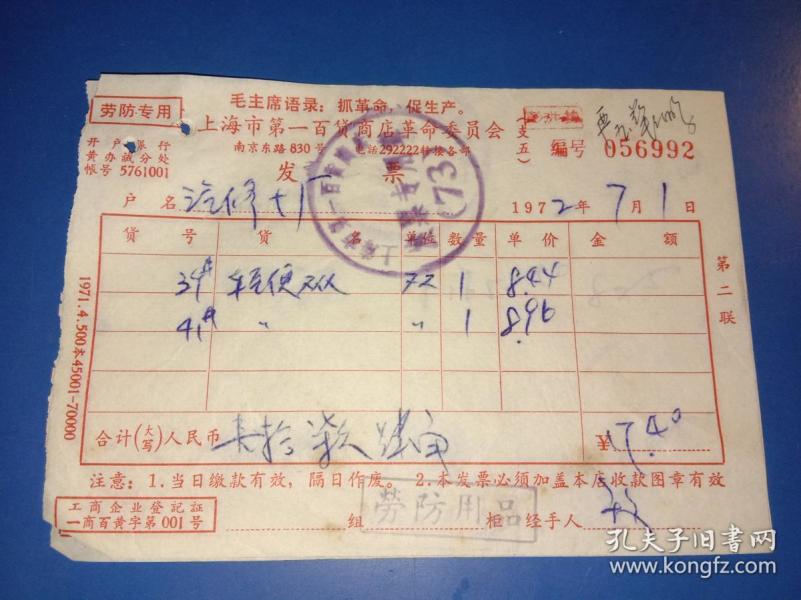 毛主席语录：抓革命，促生产。
劳防专用
上海市第一百货商店革命委员会
(支五)
编号 056992
开户银行
黄办诚分处
帐号 5761001
南京东路830号 电话292222转接各部
发票
户名 汽修十厂 1972年7月1日
货号 货名 单位 数量 单价 金额
39# 轻便 双 1 8.44
41# 〃 〃 1 8.96
合计(大写)人民币 壹拾柒元肆角 ¥17.40
注意：1.当日缴款有效，隔日作废。 2.本发票必须加盖本店收款图章有效
工商企业登記証
一商百黄字第001号
组 柜 经手人
勞防用品
第二联
1971.4.500本45001-70000
(73)
孔夫子旧书网
www.kongfz.com